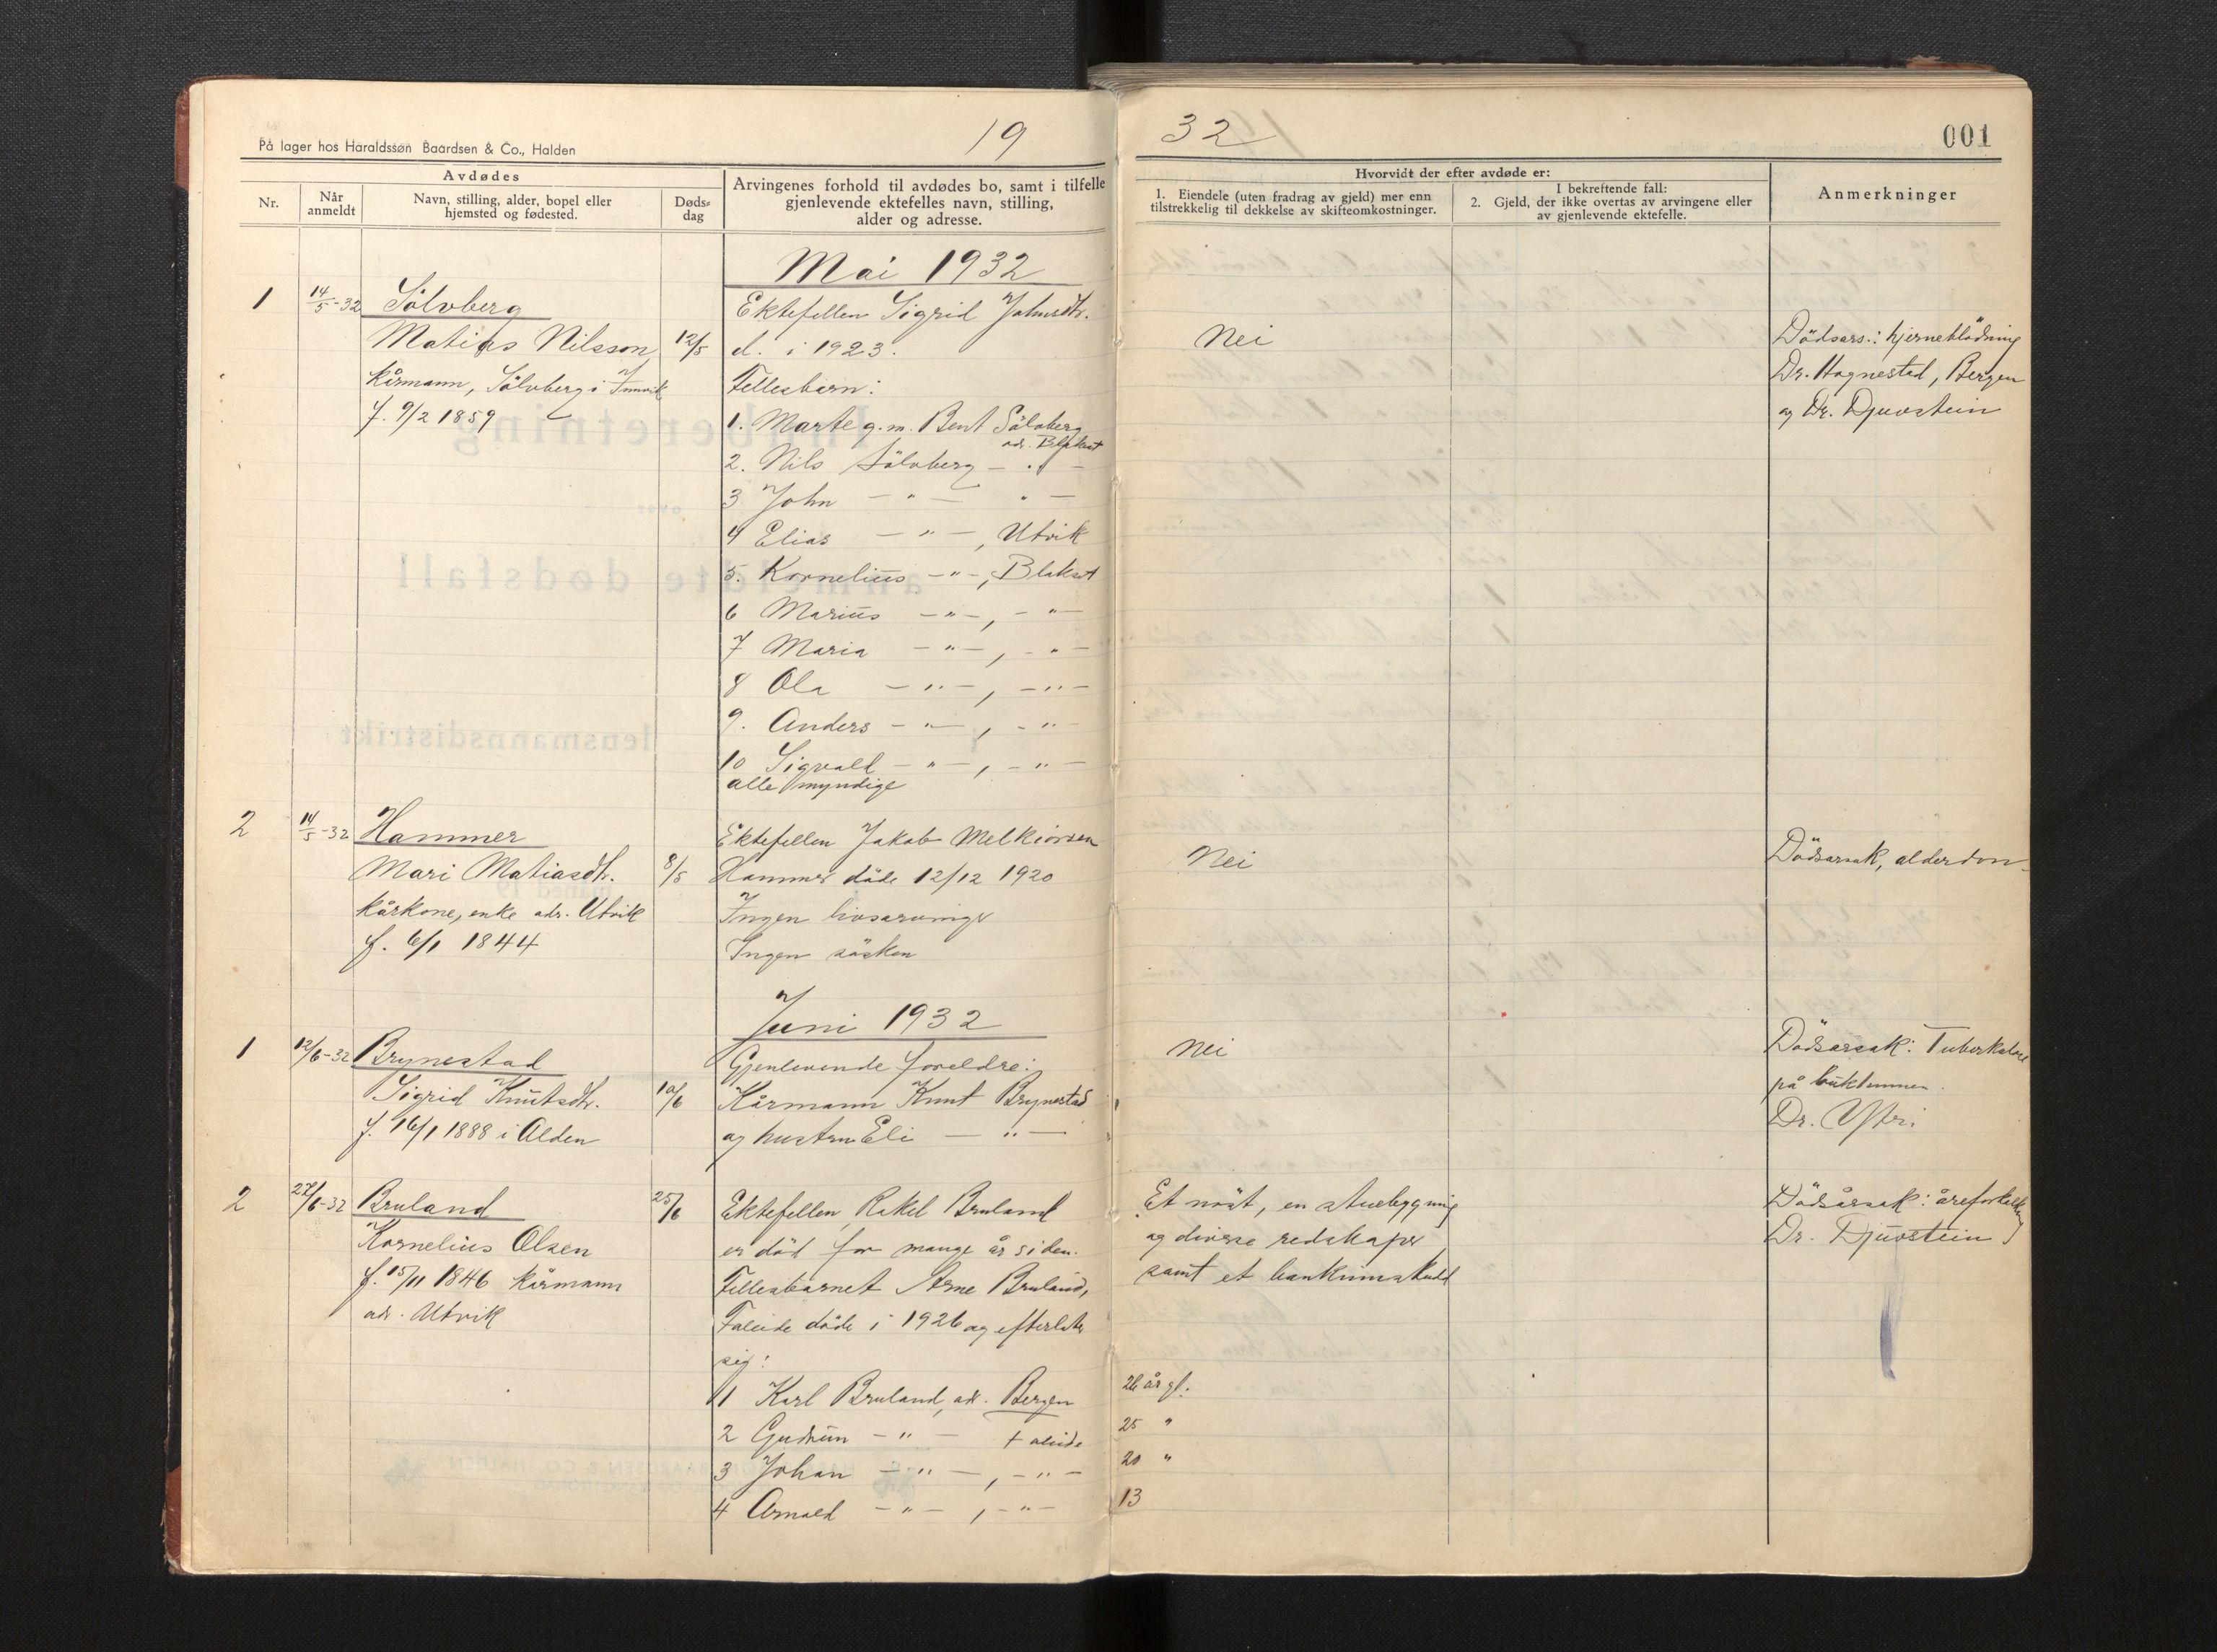 På lager hos Haraldssøn Baardsen & Co., Halden
19
32
001
Avdødes
Nr.
Når anmeldt
Navn, stilling, alder, bopel eller hjemsted og fødested.
Døds-dag
Arvingenes forhold til avdødes bo, samt i tilfelle gjenlevende ektefelles navn, stilling, alder og adresse.
Hvorvidt der efter avdøde er:
1. Eiendele (uten fradrag av gjeld) mer enn tilstrekkelig til dekkelse av skifteomkostninger.
I bekreftende fall:
2. Gjeld, der ikke overtas av arvingene eller av gjenlevende ektefelle.
Anmerkninger
Mai 1932
1 14/5-32 Sölvberg
Matias Nilsson, 12/5
kårmann, Sölvberg i Innvik
f. 9/2 1859
Ektefellen Sigrid Johnsdtr.
d. i 1923.
Fellesbarn:
1. Marte g.m. Bent Sölvberg
adr. Blakset
2. Nils Sölvberg - " -
3 John - " - " -
4 Elias - " -, Utvik
5. Kornelius - " -, Blakset
6 Marius - " -, - " -
7 Maria - " -, - " -
8 Ola - " -, - " -
9. Anders - " -, - " -
10 Sigvald - " -, - " -
alle myndige
Nei
Dödsårs.: hjerneblödning
Dr. Hognestad, Bergen
og Dr. Djuvstein
2 14/5-32 Hammer
Mari Matiasdtr. 8/5
kårkone, enke adr. Utvik
f. 6/1 1844
Ektefellen Jakob Melkiorsen
Hammer döde 12/12 1920
Ingen livsarvinger
Ingen sösken
Nei
Dödsarsak, alderdom
Juni 1932
1 12/6-32 Brynestad
Sigrid Knutsdtr. 10/6
f. 16/1 1888 i Olden
Gjenlevende foreldre:
Kårmann Knut Brynestad
og hustru Eli - " -
Nei
Dödsarsak: Tuberkulose
på bukhinnen.
Dr. Ytri
2 27/6-32 Bruland 25/6
Kornelius Olsen
f. 15/11 1846 kårmann
adr. Utvik
Ektefellen Rakel Bruland
er död for mange år siden.
Fellesbarnet Arne Bruland,
Faleide döde i 1926 og efterlater
sig:
1 Karl Bruland, adr. Bergen 26 år gl.
2 Gudrun - " - Faleide 25 "
3 Johan - " -, - " - 20 "
4 Arnold - " -, - " - 13
Et nöst, en stuebygning
og diverse redskaper
samt et bankinnskudd
Dödsårsak: åreforkalkning
Dr. Djuvstein